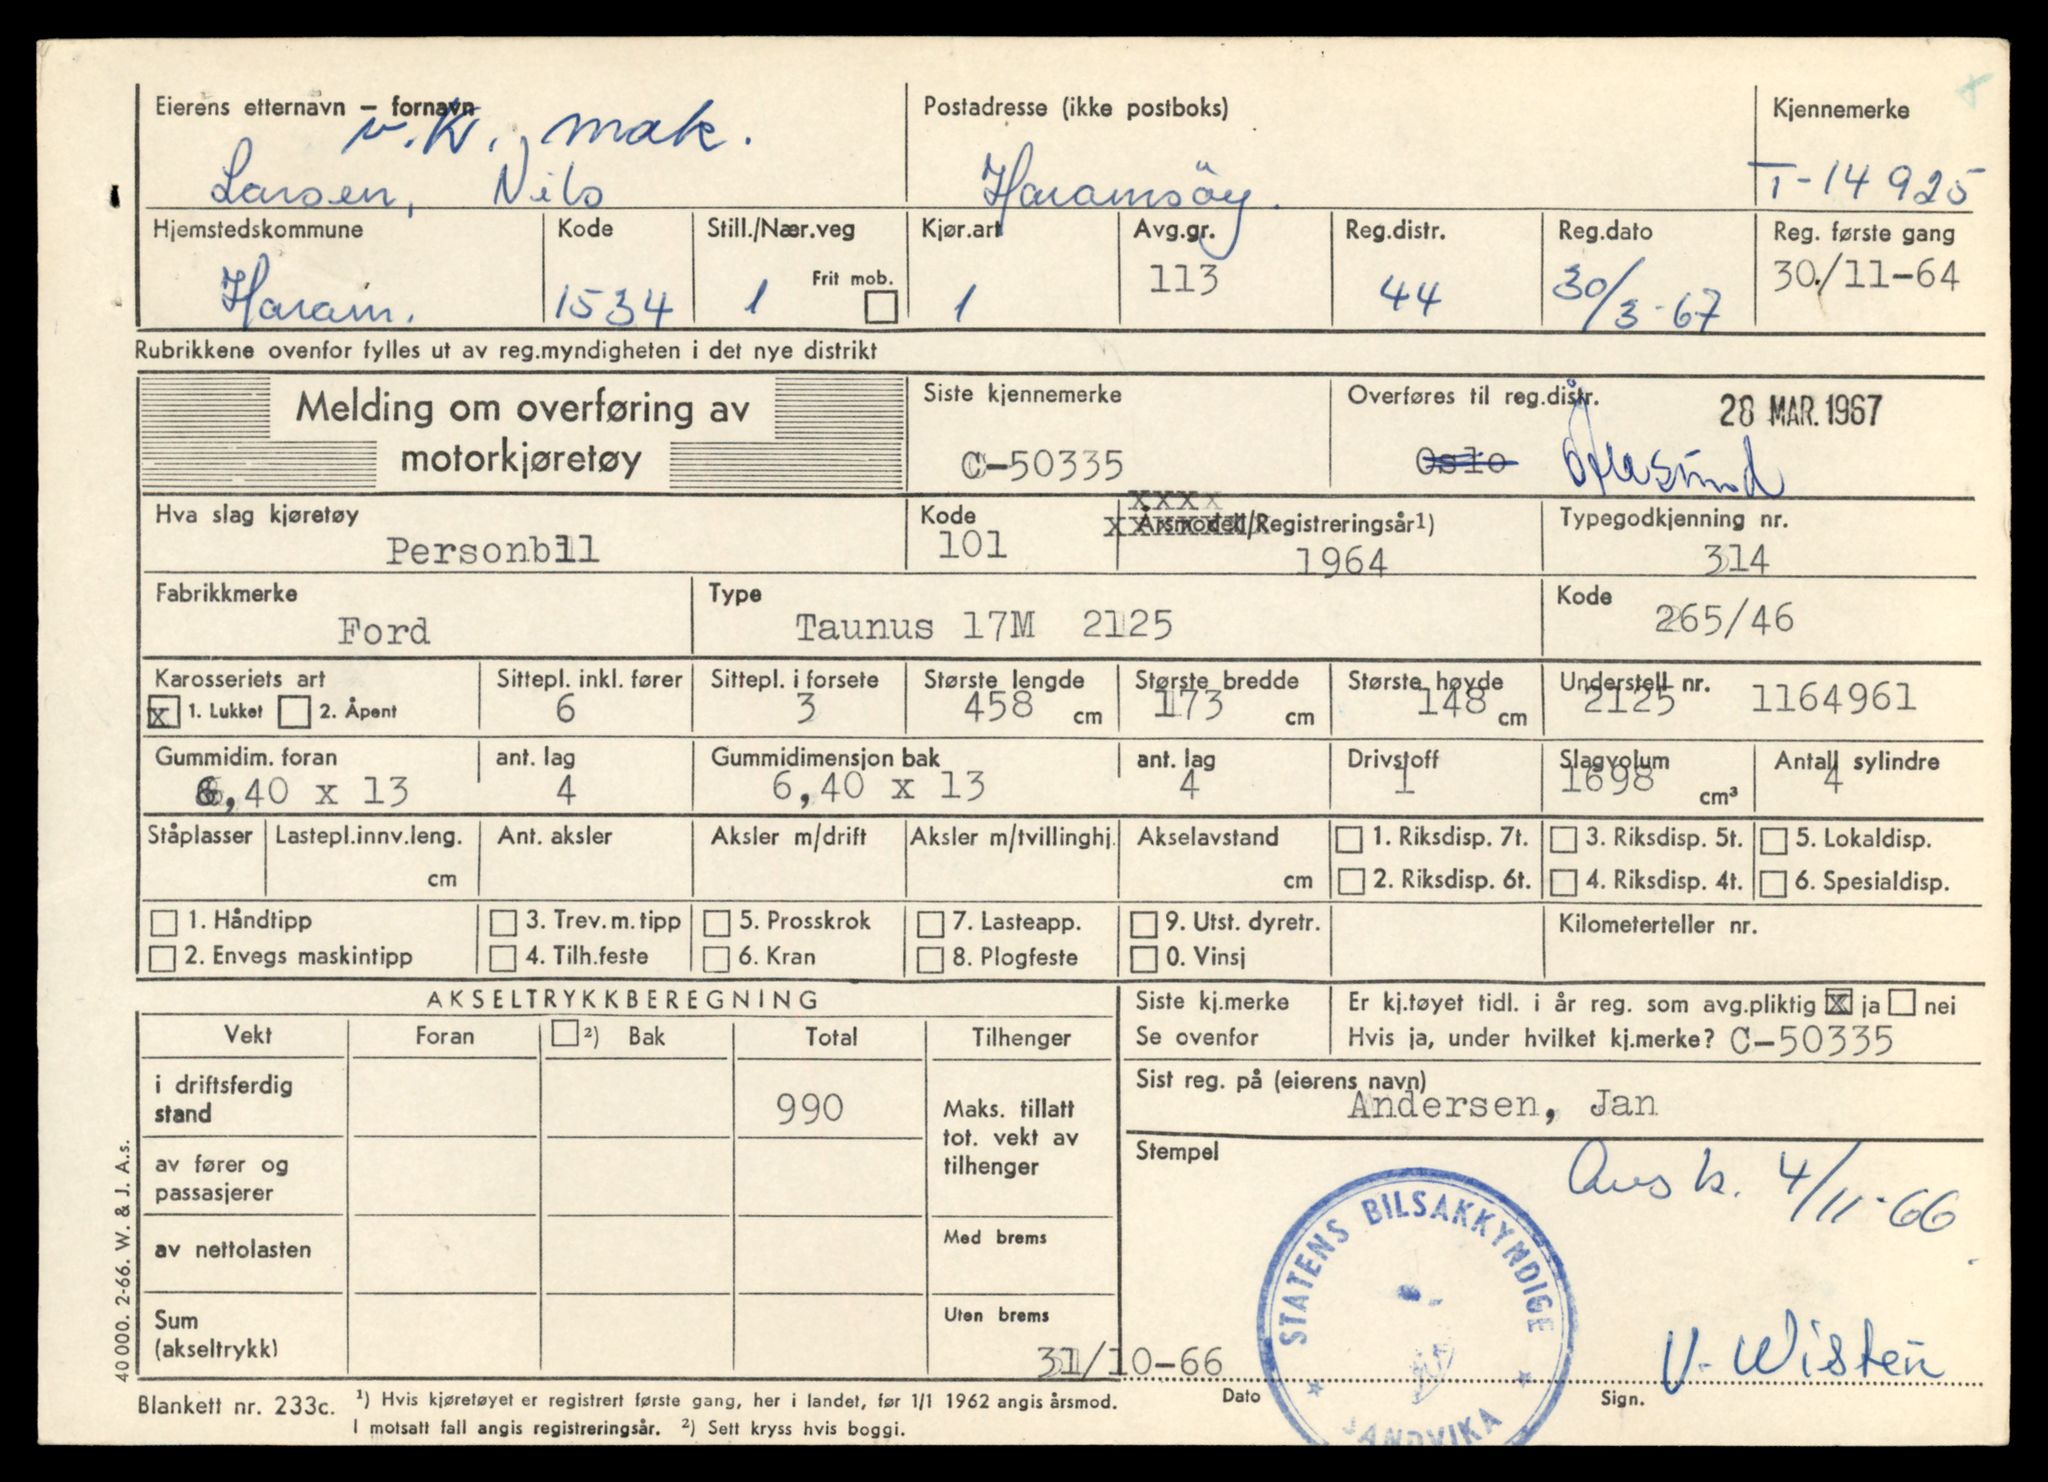 Eierens etternavn – fornavn
v. K. mak.
Larsen, Nils
Postadresse (ikke postboks)
Haramsöy.
Kjennemerke
T-14925
Hjemstedskommune
Haram.
Kode
1534
Still./Nær.veg
1
Frit mob.
Kjør.art
1
Avg.gr.
113
Reg.distr.
44
Reg.dato
30/3-67
Reg. første gang
30/11-64
Rubrikkene ovenfor fylles ut av reg.myndigheten i det nye distrikt
Melding om overføring av
motorkjøretøy
Siste kjennemerke
C-50335
Overføres til reg.distr.
28 MAR. 1967
Oslo Ålesund
Hva slag kjøretøy
Personbil
Kode
101
xxxx
Årsmodell/Registreringsår1)
1964
Typegodkjenning nr.
314
Fabrikkmerke
Ford
Type
Taunus 17M 2125
Kode
265/46
Karosseriets art
x 1. Lukket 2. Åpent
Sittepl. inkl. fører
6
Sittepl. i forsete
3
Største lengde
458 cm
Største bredde
173 cm
Største høyde
148 cm
Understell nr.
2125 1164961
Gummidim. foran
6,40 x 13
ant. lag
4
Gummidimensjon bak
6,40 x 13
ant. lag
4
Drivstoff
1
Slagvolum
1698 cm³
Antall sylindre
4
Ståplasser
Lastepl.innv.leng.
cm
Ant. aksler
Aksler m/drift
Aksler m/tvillinghj.
Akselavstand
cm
1. Riksdisp. 7t.
2. Riksdisp. 6t.
3. Riksdisp. 5t.
4. Riksdisp. 4t.
5. Lokaldisp.
6. Spesialdisp.
1. Håndtipp
2. Envegs maskintipp
3. Trev. m. tipp
4. Tilh.feste
5. Prosskrok
6. Kran
7. Lasteapp.
8. Plogfeste
9. Utst. dyretr.
0. Vinsj
Kilometerteller nr.
AKSELTRYKKBEREGNING
Vekt
Foran
2) Bak
Total
Tilhenger
i driftsferdig
stand
990
av fører og
passasjerer
av nettolasten
Sum
(akseltrykk)
Maks. tillatt
tot. vekt av
tilhenger
Med brems
Uten brems
Siste kj.merke
Se ovenfor
Er kj.tøyet tidl. i år reg. som avg.pliktig x ja nei
Hvis ja, under hvilket kj.merke? C-50335
Sist reg. på (eierens navn)
Andersen, Jan
Stempel
Avsk. 4/11-66
STATENS BILSAKKYNDIGE
SANDVIKA
31/10-66
Dato
V. Wisten
Sign.
40 000. 2-66. W. & J. A.s.
Blankett nr. 233c.
1) Hvis kjøretøyet er registrert første gang, her i landet, før 1/1 1962 angis årsmod.
I motsatt fall angis registreringsår. 2) Sett kryss hvis boggi.